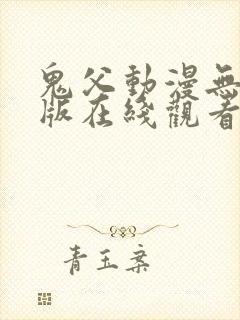 鬼父動漫無
版在綫觀看
青玉案